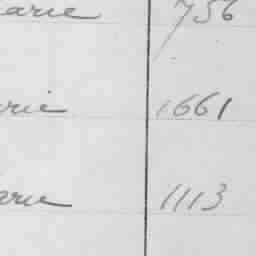 arie 756
rie 1661
arie 1113